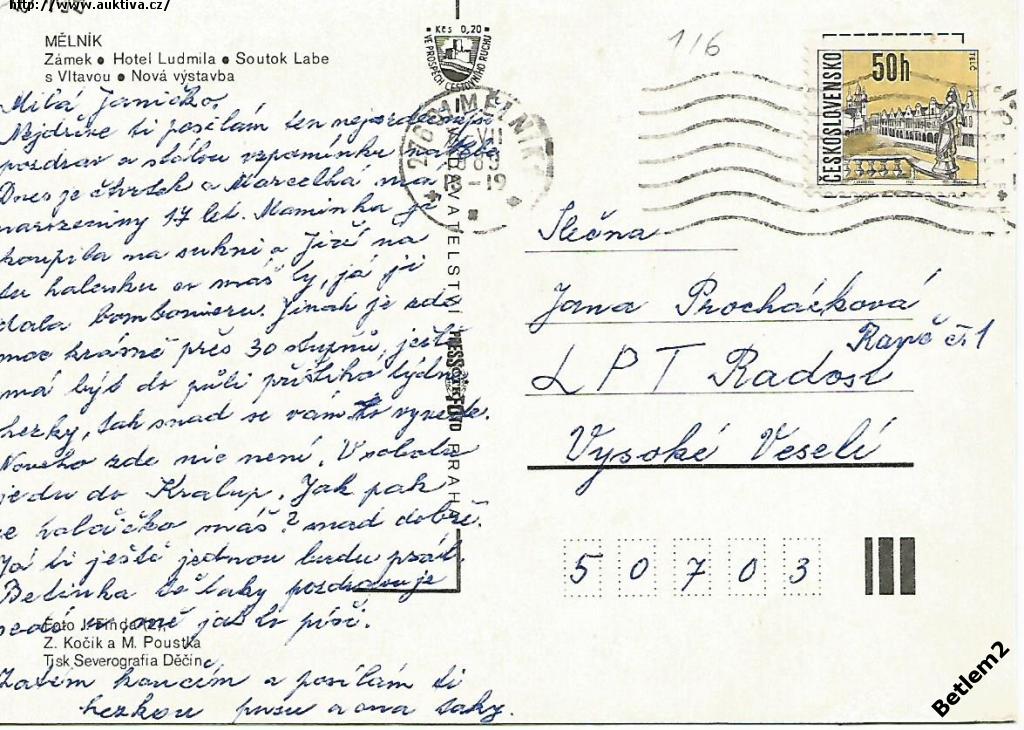 http://www.auktiva.cz/
MĚLNÍK
Zámek ● Hotel Ludmila ● Soutok Labe
s Vltavou ● Nová výstavba
Milá Janičko,
Nejdříve ti posílám ten nejsrdečnější
pozdrav a stálou vzpomínku na Tebe
Dnes je čtvrtek a Marcelka má
narozeniny 17 let. Maminka je
koupila na sukni a Jiří na
tu halenku od máš ly, já ji
dala bombonieru. Jinak je zde
moc krásně přes 30 stupňů, ještě
má být do půli příštího týdne
hezky, tak snad se vám to vyvede.
Nového zde nic není. V sobotu
jedu do Kralup. Jak pak
se holčičko máš? snad dobře.
Já ti ještě jednou budu psát.
Betinka tě taky pozdravuje
sedí u mě jak ti píši.
Foto J.
Z. Kočík a M. Poustka
Tisk Severografia Děčín
Zatím končím a posílám ti
hezkou pusu a ona taky.
Kčs 0,20
VE PROSPĚCH CESTOVNÍHO RUCHU
276 01 MĚLNÍK 1
VII
18-19
VYDAVATELSTVÍ PRESSFOTO PRAHA
1/6
ČESKOSLOVENSKO
50h
TELČ
Slečna
Jana Procházková
Raně č. 1
LPT Radost
Vysoké Veselí
50703
Betlem2